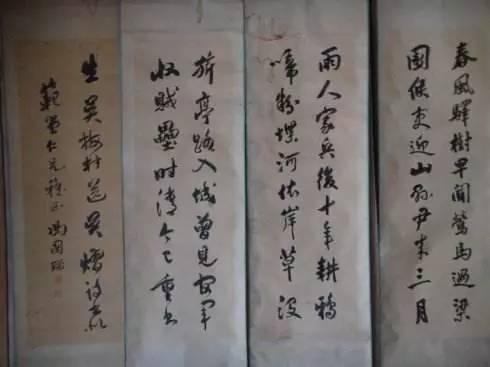 春風驛樹早聞鶯馬過梁
園候吏迎山縣尹來三月
雨人家兵後十年耕鴉
啼粉堞河依岸草沒
旂亭路入城曾見官軍
收賊壘時清今已重書
生吳梅村送吳
仁兄雅正馮國瑞